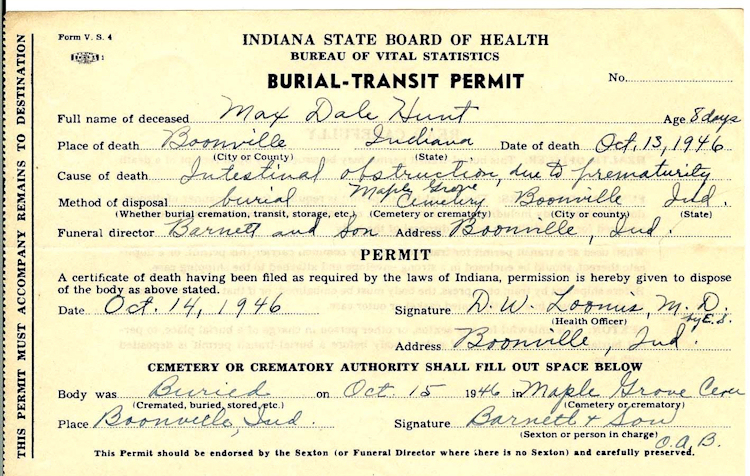 Form V. S. 4
INDIANA STATE BOARD OF HEALTH
BUREAU OF VITAL STATISTICS
BURIAL-TRANSIT PERMIT
No.
Full name of deceased Max Dale Hunt Age 8 days
Place of death Boonville Indiana Date of death Oct. 13, 1946
(City or County) (State)
Cause of death Intestinal obstruction, due to prematurity
Method of disposal burial Maple Grove Cemetery Boonville Ind.
(Whether burial cremation, transit, storage, etc.) (Cemetery or crematory) (City or county) (State)
Funeral director Barnett and Son Address Boonville, Ind.
PERMIT
A certificate of death having been filed as required by the laws of Indiana, permission is hereby given to dispose
of the body as above stated.
Date Oct. 14, 1946 Signature D. W. Loomis, M. D.
(Health Officer) by E. S.
Address Boonville, Ind.
CEMETERY OR CREMATORY AUTHORITY SHALL FILL OUT SPACE BELOW
Body was Buried on Oct 15 1946 in Maple Grove Cem
(Cremated, buried, stored, etc.) (Cemetery or crematory)
Place Boonville, Ind. Signature Barnett & Son
(Sexton or person in charge) O.A.B.
This Permit should be endorsed by the Sexton (or Funeral Director where there is no Sexton) and carefully preserved.
THIS PERMIT MUST ACCOMPANY REMAINS TO DESTINATION